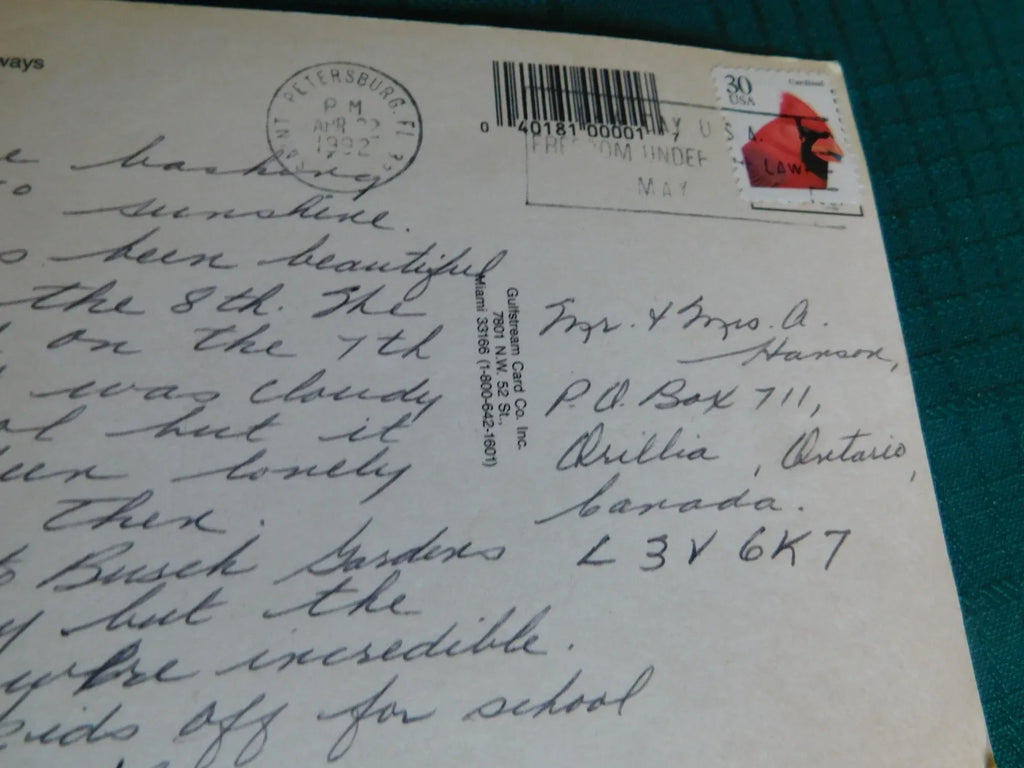 ways
SAINT PETERSBURG, FL
PM
APR
1992
0 40181 00001 7
LAW DAY U S A
FREEDOM UNDER LAW
MAY
30
USA
Cardinal
basking
sunshine.
been beautiful
the 8th. The
on the 7th
was cloudy
but it
lonely
then.
Busch Gardens
but the
were incredible.
kids off for school
Gulfstream Card Co. Inc.
7801 N.W. 52 St.,
Miami 33166 (1-800-642-1601)
Mr. & Mrs. A.
Hanson,
P.O. Box 711,
Orillia, Ontario,
Canada.
L3V 6K7